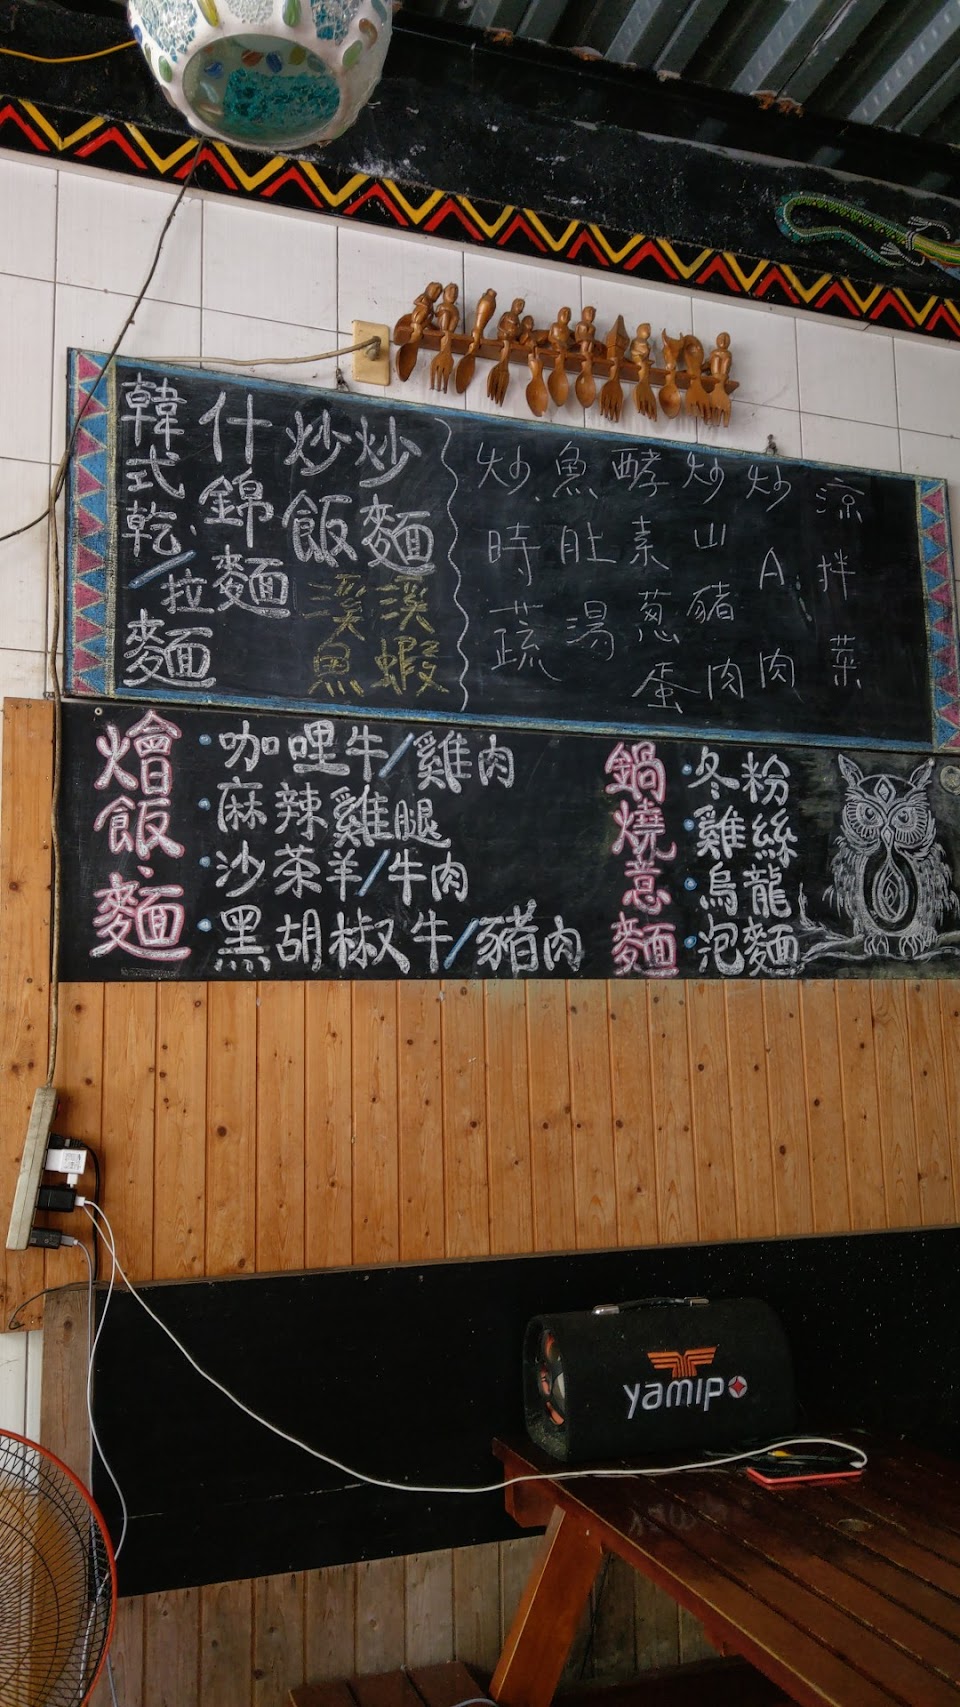 韓式乾/拉麵
什錦麵
炒飯
溪魚
炒麵
溪蝦
炒時蔬
魚肚湯
酵素葱蛋
炒山豬肉
炒A肉
涼拌菜
燴飯、麵
·咖哩牛/雞肉
·麻辣雞腿
·沙茶羊/牛肉
·黑胡椒牛/豬肉
鍋燒薏麵
·冬粉
·雞絲
·烏龍
·泡麵
yamipo